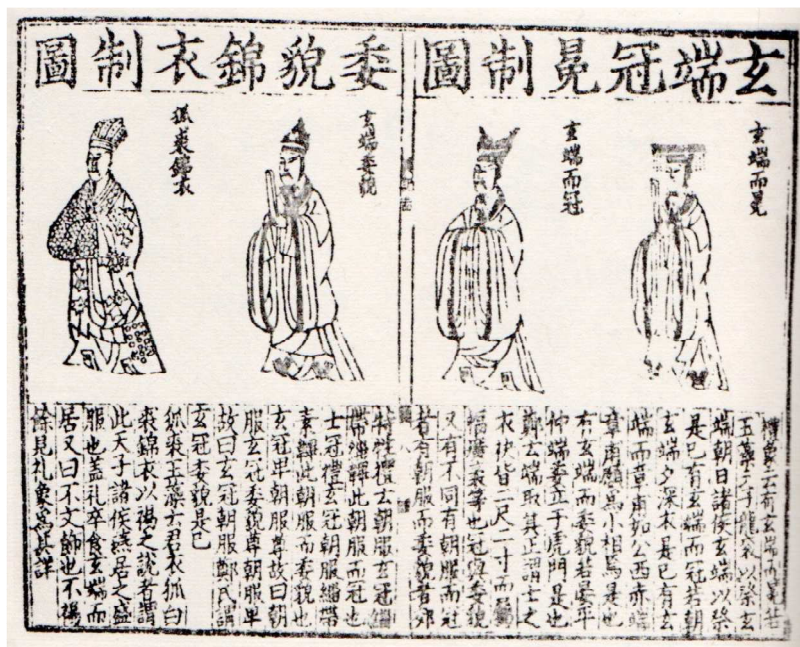 玄端冠冕制圖
玄端而冕
玄端而冠
禮象云有玄端而冕若
玉藻天子龍衮以祭玄
端朝日諸侯玄端以祭
是已有玄端而冠若朝
玄端夕深衣是已有玄
端而章甫如公西赤端
章甫願爲小相焉是也
有玄端而委貌若晏平
仲端委立于虎門是也
鄭云端取其正謂士之
衣袂皆二尺二寸而屬
幅廣袤等也冠與委貌
又有不同有朝服而冠
者有朝服而委貌者郊
委貌錦衣制圖
玄端委貌
狐裘錦衣
特牲禮玄朝服玄冠緇
帶緇韠此朝服而冠也
士冠禮玄冠朝服緇帶
素韠此朝服而委貌也
玄冠卑朝服尊故曰朝
服玄冠委貌尊朝服卑
故曰玄冠朝服鄭氏謂
玄冠委貌是已
狐裘玉藻云君衣狐白
裘錦衣以裼之說者謂
此天子諸侯燕居之盛
服也蓋礼卒食玄端而
居又曰不文飾也不裼
餘見礼象爲其詳